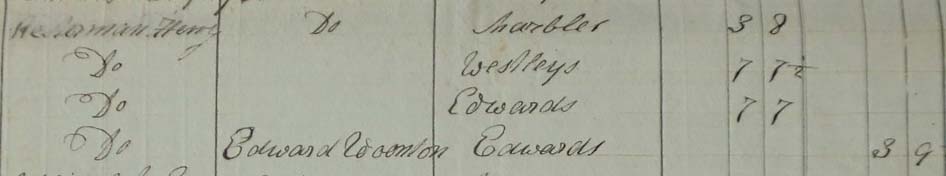 Henry Do Marbler 3 8
Do Westleys 7 7½
Do Edwards 7 7
Do Edward Woonton Edwards 3 9